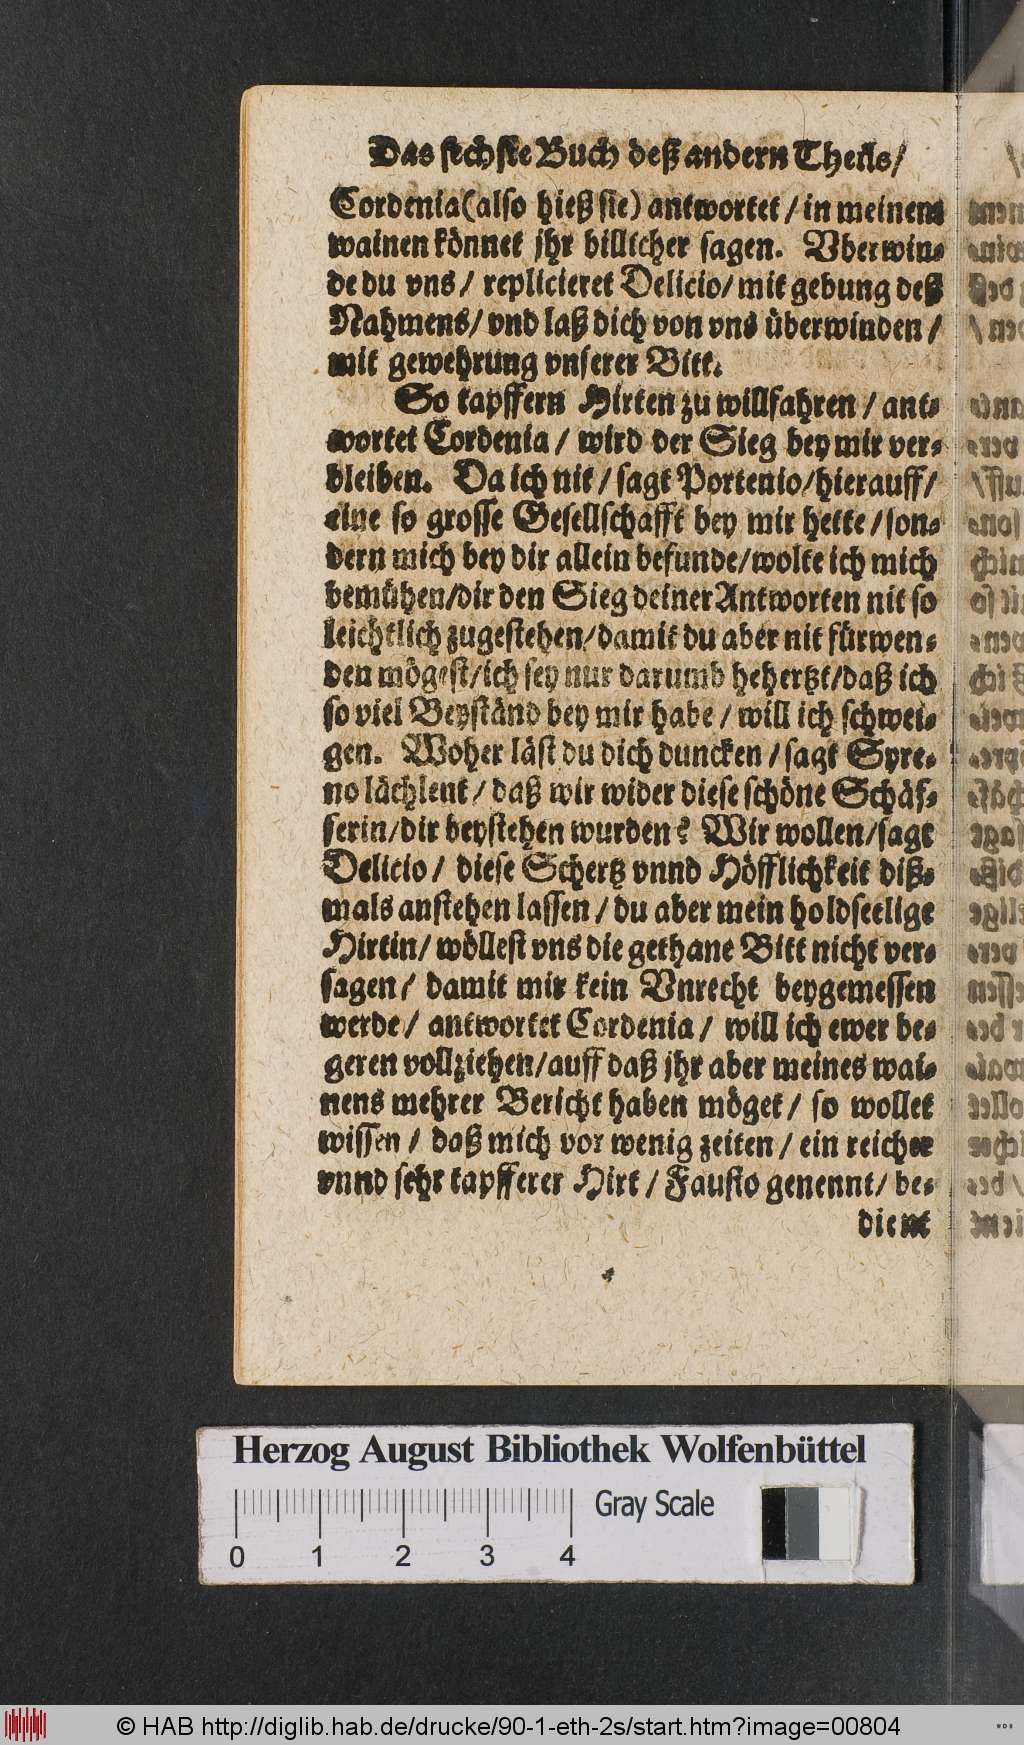 Das sechste Buch deß andern Theils/
Cordenia (also hieß sie) antwortet / in meinem
wainen könnet jhr billicher sagen. Vberwin-
de du vns / replicieret Delicio / mit gebung deß
Nahmens / vnd laß dich von vns überwinden /
mit gewehrung vnserer Bitt.
So tapffern Hirten zu willfahren / ant-
wortet Cordenia / wird der Sieg bey mir ver-
bleiben. Da ich nit / sagt Portenio / hierauff /
eine so grosse Gesellschafft bey mir hette / son-
dern mich bey dir allein befunde / wolte ich mich
bemühen / dir den Sieg deiner Antworten nit so
leichtlich zugestehen / damit du aber nit fürwen-
den mögest / ich sey nur darumb hehertzt / daß ich
so viel Beyständ bey mir habe / will ich schwei-
gen. Woher läst du dich duncken / sagt Syre-
no lächlent / daß wir wider diese schöne Schäf-
ferin / dir beystehen wurden? Wir wollen / sagt
Delicio / diese Schertz vnnd Höfflichkeit diß-
mals anstehen lassen / du aber mein holdseelige
Hirtin / wöllest vns die gethane Bitt nicht ver-
sagen / damit mir kein Vnrecht beygemessen
werde / antwortet Cordenia / will ich ewer be-
geren vollziehen / auff daß jhr aber meines wai-
nens mehrer Bericht haben möget / so wollet
wissen / daß mich vor wenig zeiten / ein reicher
vnnd sehr tapfferer Hirt / Fausto genennt / be-
dient
Herzog August Bibliothek Wolfenbüttel
Gray Scale
0 1 2 3 4
© HAB http://diglib.hab.de/drucke/90-1-eth-2s/start.htm?image=00804